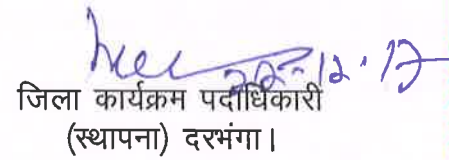 22-12-17
जिला कार्यक्रम पदाधिकारी
(स्थापना) दरभंगा।